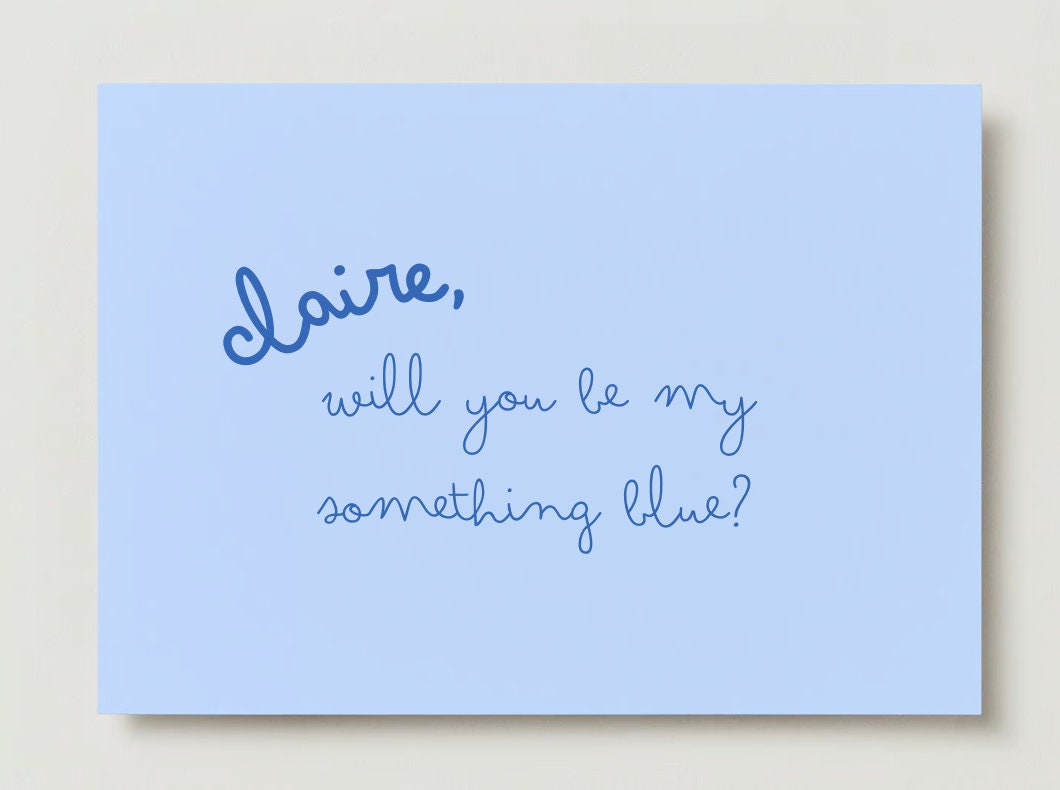 claire,
will you be my
something blue?